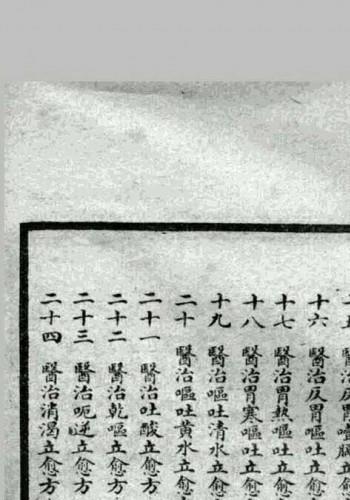 十五 醫治反胃噎膈立愈
十六 醫治反胃嘔吐立愈
十七 醫治胃熱嘔吐立愈
十八 醫治胃寒嘔吐立愈
十九 醫治嘔吐清水立愈
二十 醫治嘔吐黃水立愈
二十一 醫治吐酸立愈方
二十二 醫治乾嘔立愈方
二十三 醫治呃逆立愈方
二十四 醫治消渴立愈方